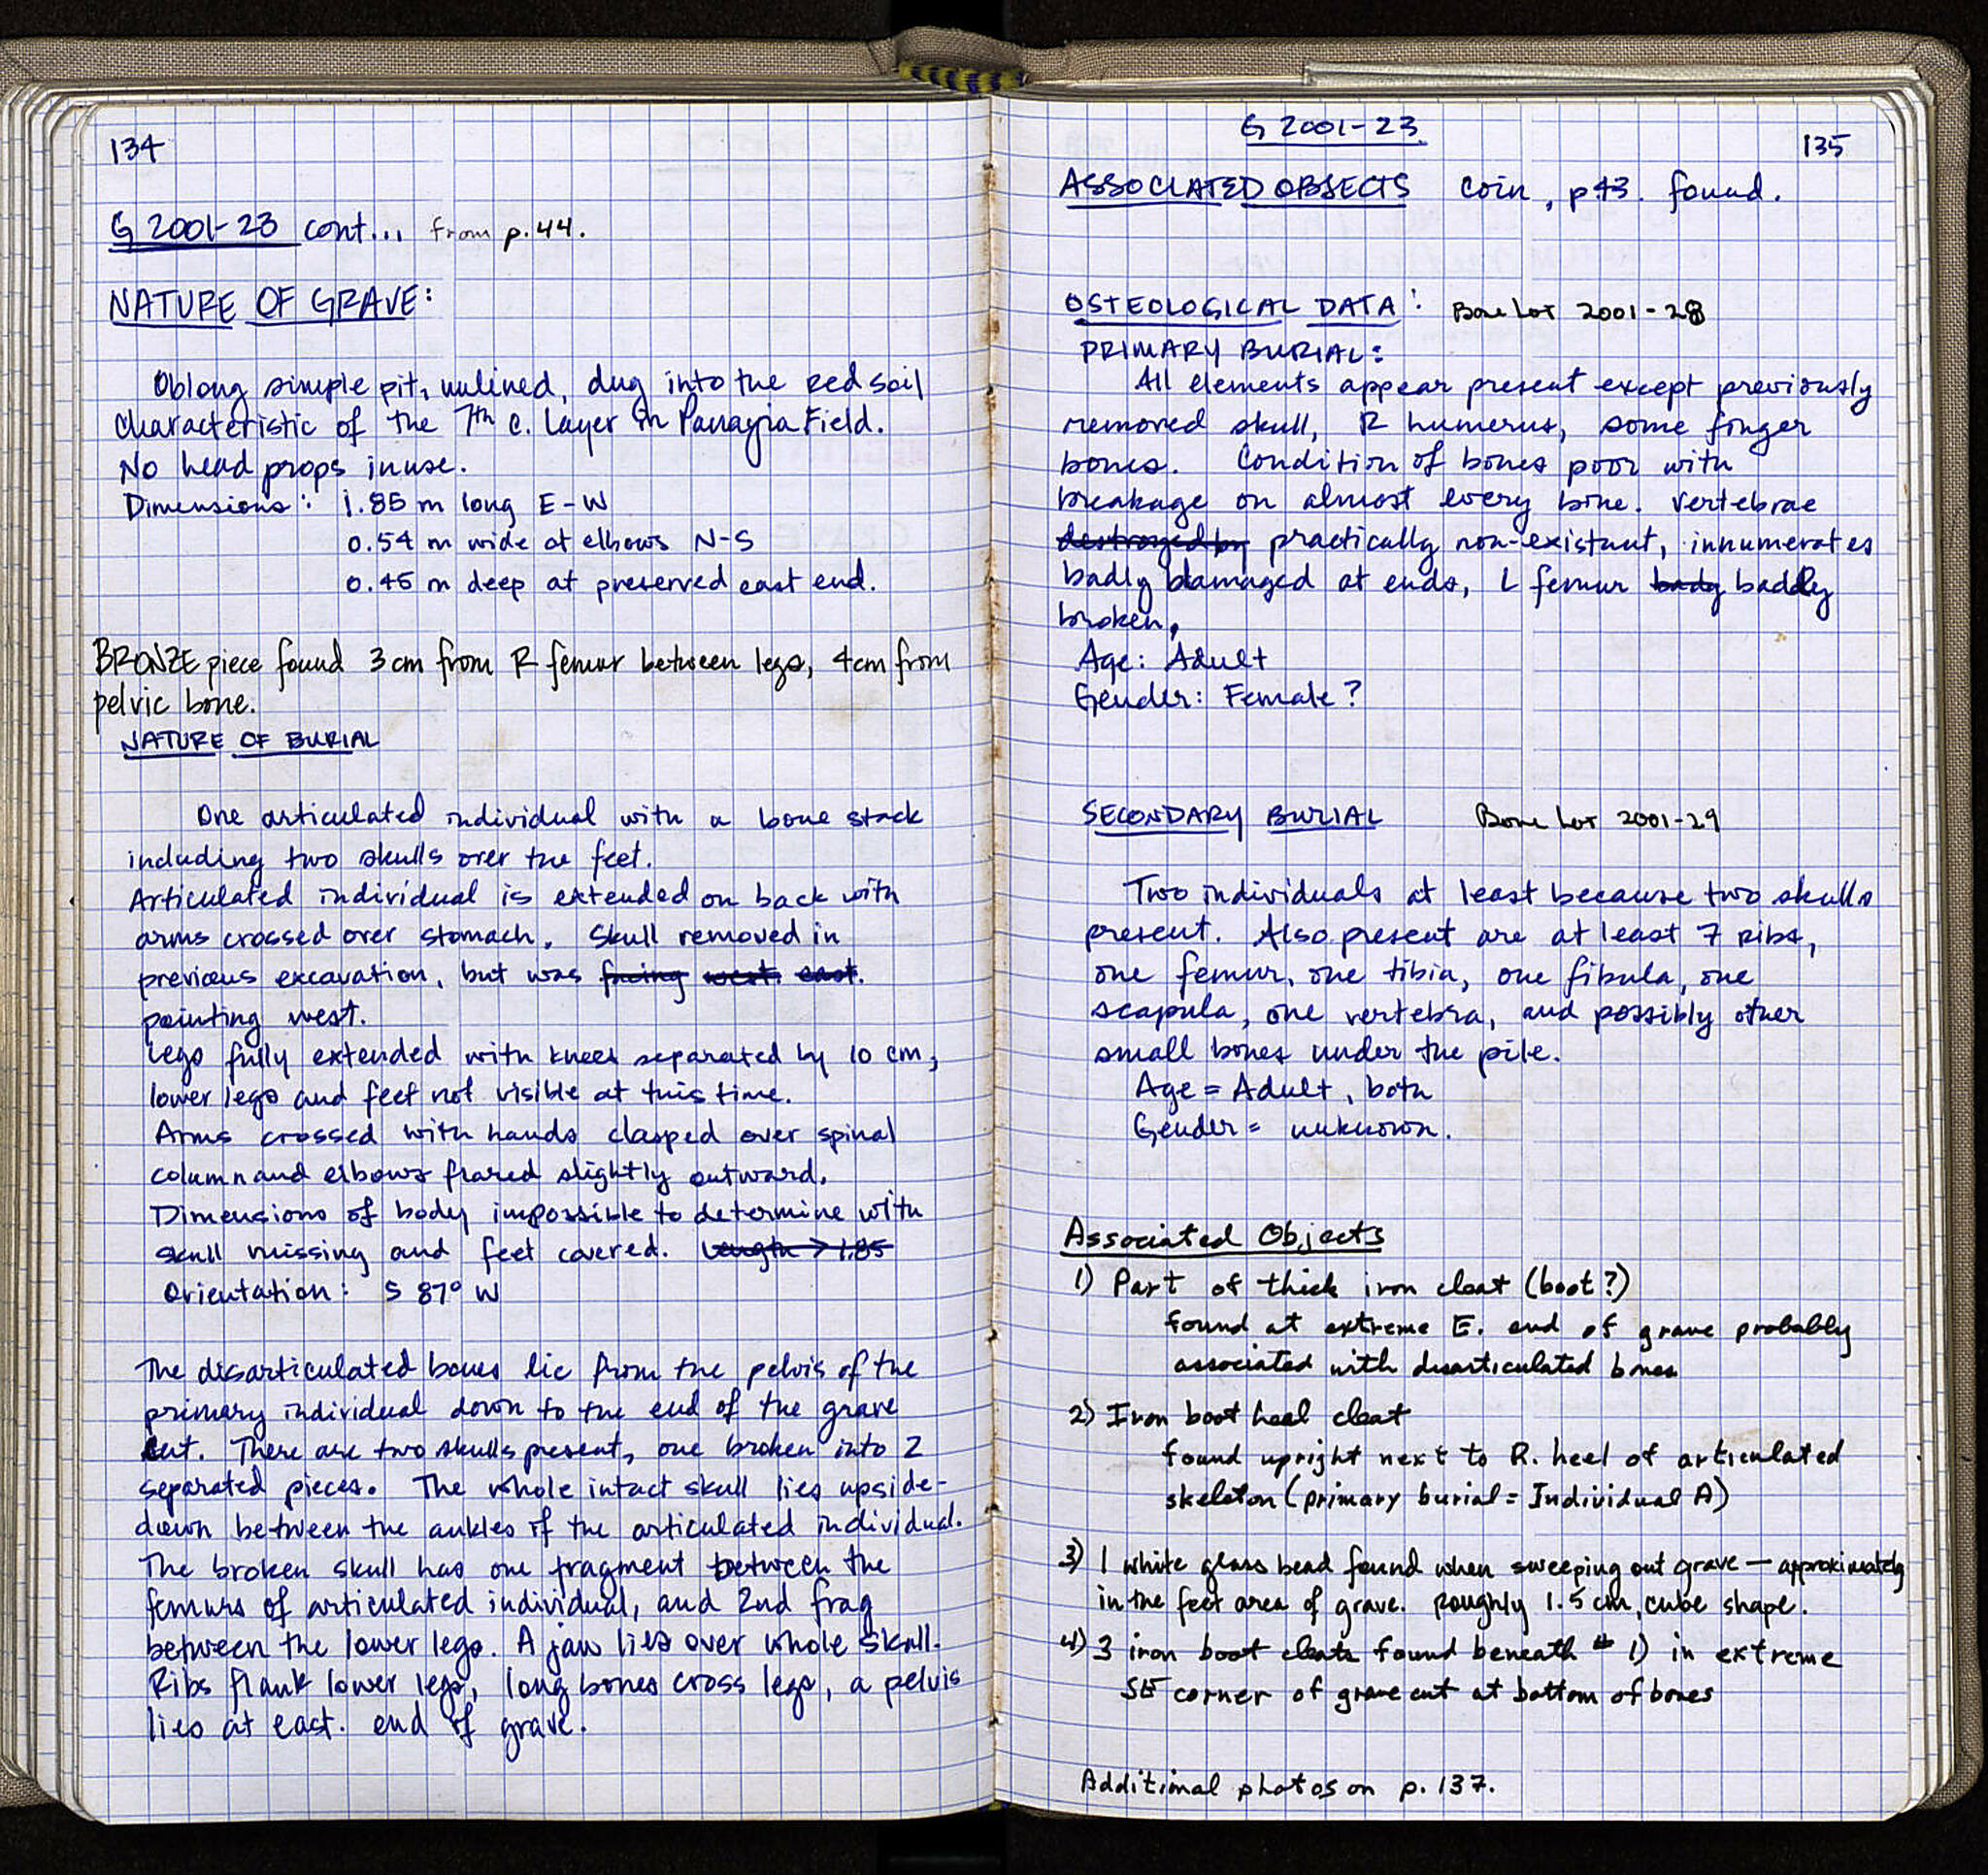 134
G 2001-23 cont... from p.44.
NATURE OF GRAVE:
Oblong simple pit, unlined, dug into the red soil
characteristic of the 7th c. layer in Panagia Field.
No head props in use.
Dimensions: 1.85 m long E-W
0.54 m wide at elbows N-S
0.45 m deep at preserved east end.
BRONZE piece found 3 cm from R femur between legs, 4cm from
pelvic bone.
NATURE OF BURIAL
One articulated individual with a bone stack
including two skulls over the feet.
Articulated individual is extended on back with
arms crossed over stomach. Skull removed in
previous excavation, but was facing west. east.
pointing west.
Legs fully extended with knees separated by 10 cm,
lower legs and feet not visible at this time.
Arms crossed with hands clasped over spinal
column and elbows flared slightly outward.
Dimensions of body impossible to determine with
skull missing and feet covered. Length > 1.85
Orientation: S 87° W
The disarticulated bones lie from the pelvis of the
primary individual down to the end of the grave
cut. There are two skulls present, one broken into 2
separated pieces. The whole intact skull lies upside-
down between the ankles of the articulated individual.
The broken skull has one fragment between the
femurs of articulated individual, and 2nd frag
between the lower legs. A jaw lies over whole skull.
Ribs flank lower legs, long bones cross legs, a pelvis
lies at east. end of grave.
G 2001-23
135
ASSOCIATED OBJECTS coin, p.43. found.
OSTEOLOGICAL DATA: Bone Lot 2001-28
PRIMARY BURIAL:
All elements appear present except previously
removed skull, R humerus, some finger
bones. Condition of bones poor with
breakage on almost every bone. Vertebrae
destroyed by practically non-existant, innumerates
badly damaged at ends, L femur bady baddly
broken,
Age: Adult
Gender: Female?
SECONDARY BURIAL Bone Lot 2001-29
Two individuals at least because two skulls
present. Also present are at least 7 ribs,
one femur, one tibia, one fibula, one
scapula, one vertebra, and possibly other
small bones under the pile.
Age = Adult, both
Gender = unknown.
Associated Objects
1) Part of thick iron cleat (boot?)
found at extreme E. end of grave probably
associated with disarticulated bones
2) Iron boot heal cleat
found upright next to R. heel of articulated
skeleton (primary burial = Individual A)
3) 1 white glass bead found when sweeping out grave — approximately
in the feet area of grave. Roughly 1.5 cm, cube shape.
4) 3 iron boot cleats found beneath # 1) in extreme
SE corner of grave cut at bottom of bones
Additional photos on p. 137.